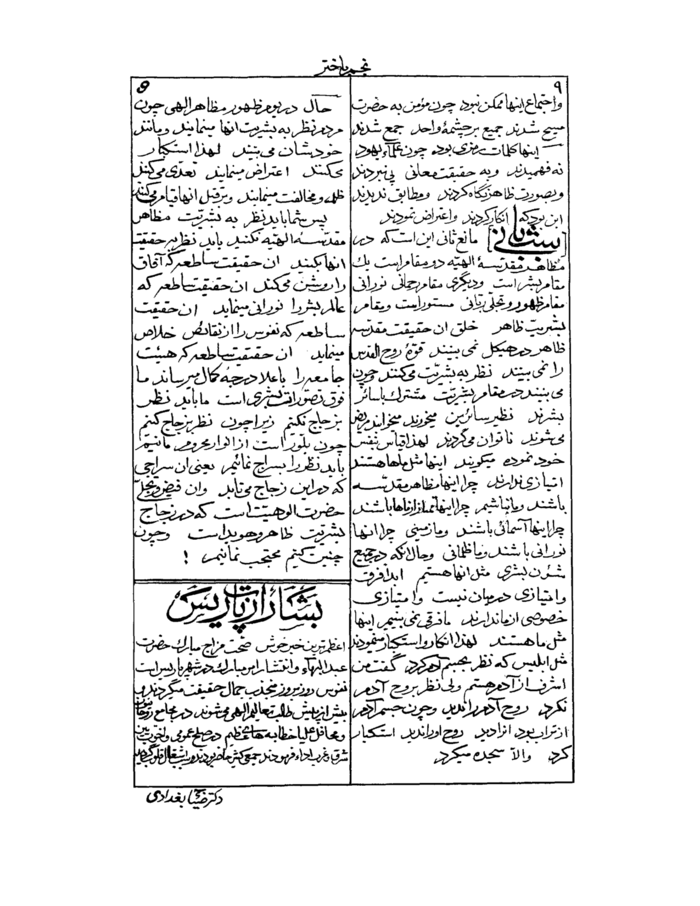 نجم باختر
۹
و اجتماع اینها ممکن نبود چون مؤمن به حضرت
مسیح شدند جمیع بر چشمهٔ واحد جمع شدند
اینها کلمات رمزی بود چون علماء یهود
نه فهمیدند و به حقیقت معانی پی نبردند
و بصورت ظاهر نگاه کردند و مطابق ندیدند
این بود که انکار کردند و اعتراض نمودند
مانع ثانی این است که در
مظاهر مقدسهٔ الهیه دو مقام است یک
مقام بشر است و دیگری مقام رحمانی نورانی
مقام ظهور و تجلی ربانی مستور است و مقام
بشریت ظاهر خلق ان حقیقت مقدسه
ظاهر در هیکل نمی بینند قوهٔ روح القدس
را نمی بینند نظر به بشریت می کنند و چون
می بینند در مقام بشریت مشترک با سائر
بشرند نظیر سائرین میخورند میخوابند مریض
می شوند ناتوان می گردند لهذا قیاس بنفس
خود نموده میگویند اینها مثل ما هستند
امتیازی ندارند چرا اینها مظاهر مقدسه
باشند و ما نباشیم چرا اینها ممتاز از ما باشند
چرا اینها آسمانی باشند و ما زمینی چرا اینها
نورانی باشند و ما ظلمانی و حال انکه در جمیع
شئون بشری مثل انها هستیم ابدا فرقی
و امتیازی در میان نیست و امتیازی
خصوصی از ما ندارند ما فرقی نمی بینیم اینها
مثل ما هستند لهذا انکار و استکبار مینمودند
مثل ابلیس که نظر بجسم آدم کرد گفت من
اشرف از آدم هستم ولی نظر بروح آدم
نکرد روح آدم را ندید و چون جسم آدم
از تراب بود انرا دید روح او را ندید استکبار
کرد والا سجده میکرد
9
حال در یوم ظهور مظاهر الهی چون
مردم نظر به بشریت انها مینمایند و مانند
خودشان می بینند لهذا استکبار
میکنند اعتراض مینمایند تعدی می کنند
ظلم و مخالفت مینمایند و بر قتل انها قیام می کنند
پس شما باید نظر به بشریت مظاهر
مقدسه الهیه نکنید باید نظر بر حقیقت
انها بکنید ان حقیقت ساطعه که آفاق
را روشن می کند ان حقیقت ساطعه که
عالم بشر را نورانی مینماید ان حقیقت
ساطعه که نفوس را از نقائص خلاص
مینماید ان حقیقت ساطعه که هیئت
جامعه را باعلا درجهٔ کمال میرساند ما
فوق تصورات بشری است ما باید نظر
بزجاج نکنیم زیرا چون نظر بزجاج کنیم
چون بلور است از انوار محروم مانیم
باید نظر را بسراج نمائیم یعنی ان سراجی
که در این زجاج می تابد و ان فیض و تجلی
حضرت الوهیت است که در زجاج
بشریت ظاهر و هویدا است و چون
چنین کنیم محتجب نمانیم !
بشارات از پاریس
اعظم ترین خبر خوش صحت مزاج مبارک حضرت
عبدالبهآء و انتشار امر مبارک در شهر پاریس است
نفوس روز بروز منجذب جمال حقیقت میگردند و
بیش از پیش طالب تعالیم الهی می شوند در مجامع
و محافل علیا خطابه های عظیم در صلح عمومی
شرق و غرب اداء فرمودند جمعی کثیر حاضر بودند
دکتر ضیا بغدادی